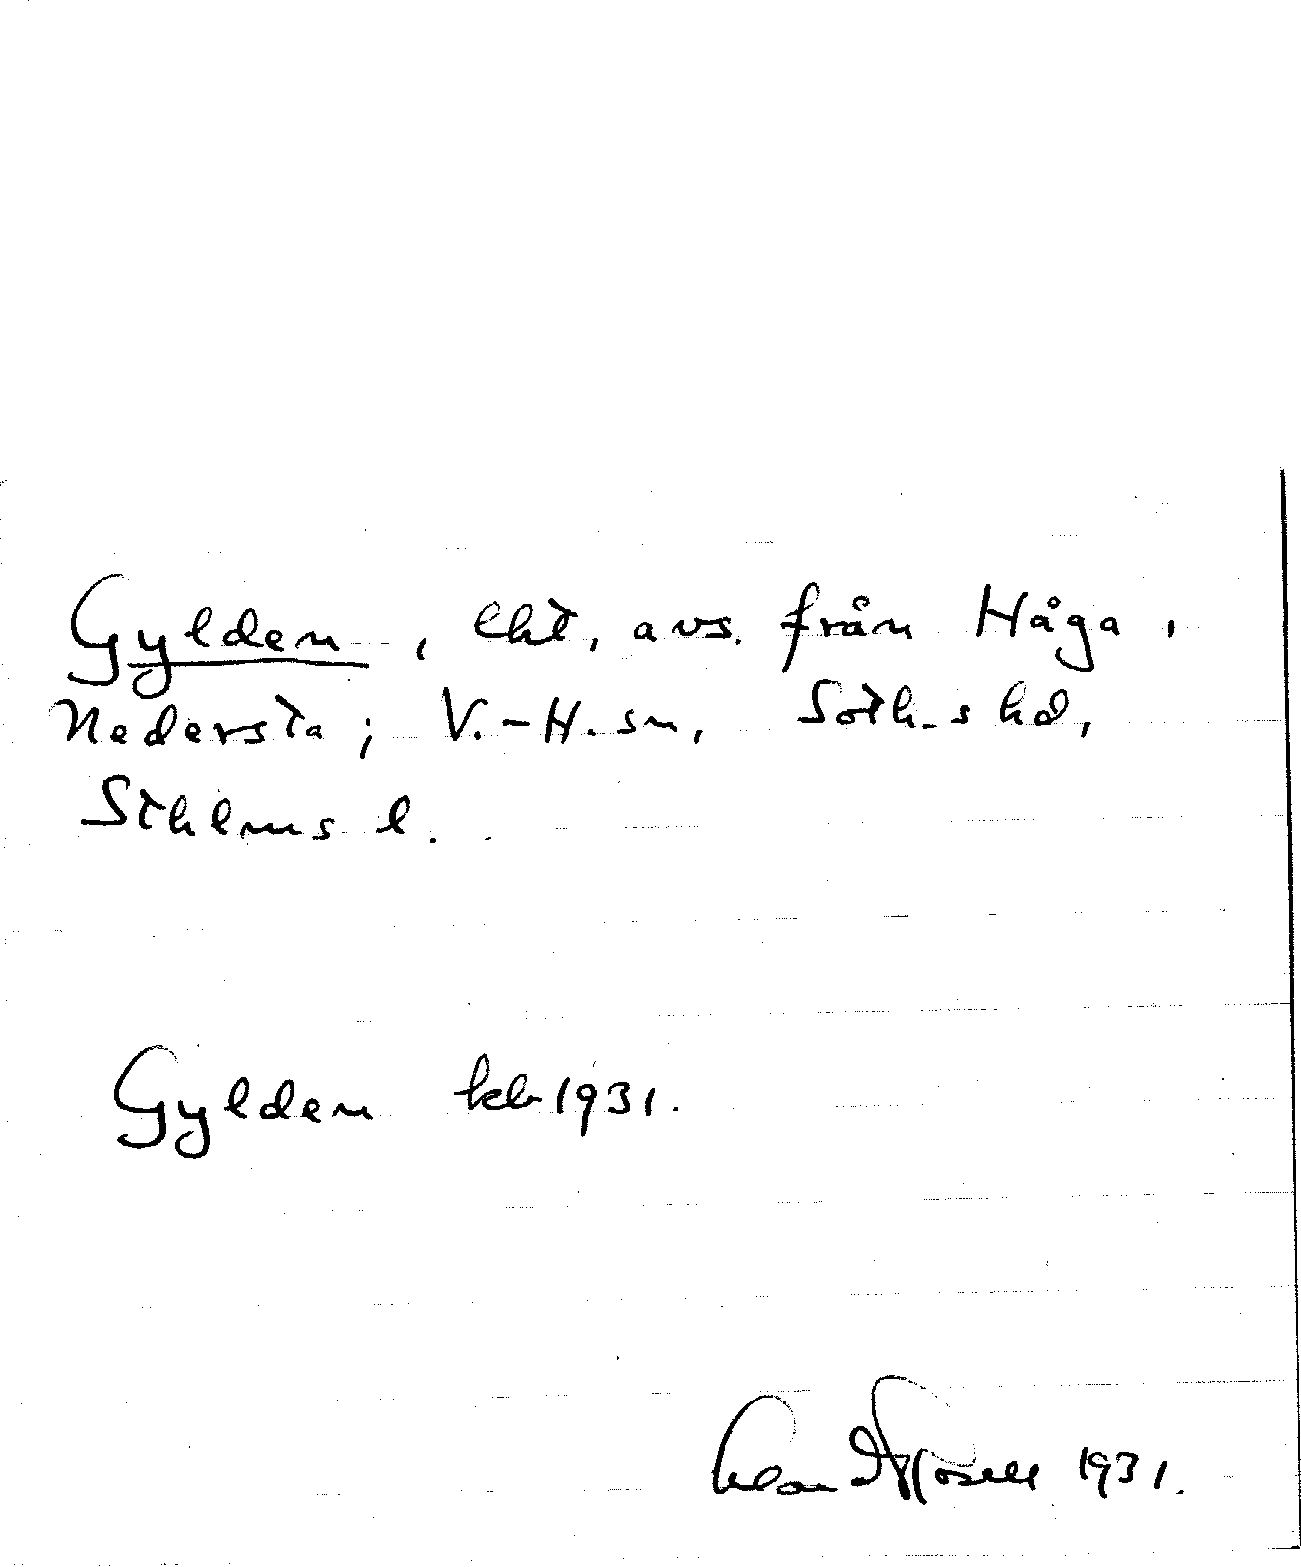 Gylden, lht, avs. från Håga,
Nedersta; V.-H. sn, Soth.s hd,
Sthlms l.
Gylden kb 1931.
1931.